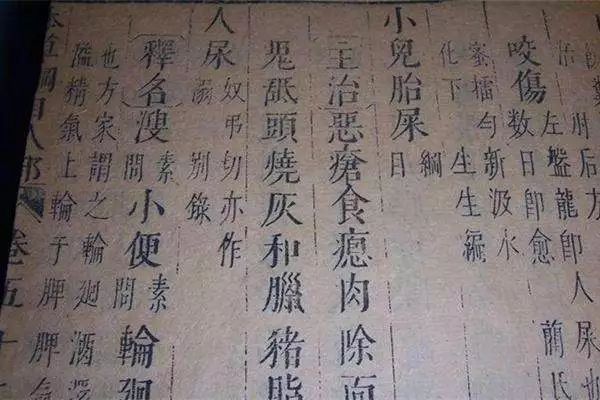 肘后方
左盤龍即人屎也
藺氏
咬傷數日即愈
蜜擂勻新汲水
化下 生生編
小兒胎屎綱目
主治惡瘡食瘜肉除面
鬼舐頭燒灰和臘猪脂
人尿奴弔切亦作
溺別錄
釋名溲素問小便素問輪廻
也方家謂之輪廻酒還
溢精氣上輪于脾脾氣
綱目人部 卷五十